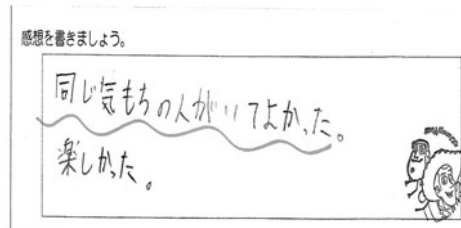 感想を書きましょう。
同じ気もちの人がいてよかった。
楽しかった。